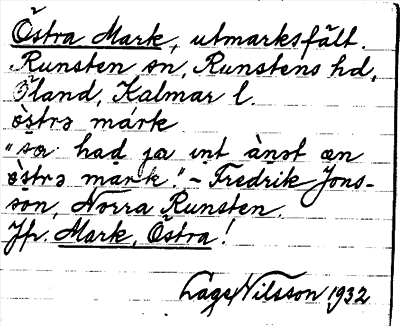 Östra Mark, utmarksfält.
Runsten sn, Runstens hd,
Öland, Kalmar l.
östrə márk
"sɑ had ja int ànst æn
östrə mark." – Fredrik Jons-
son, Norra Runsten.
Jfr. Mark, Östra!
Nilsson 1932